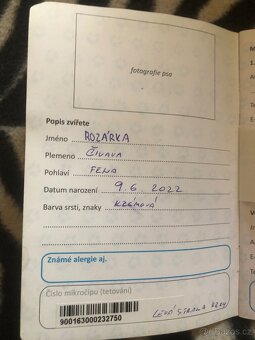 fotografie psa
Popis zvířete
Jméno ROZÁRKA
Plemeno ČIVAVA
Pohlaví FENA
Datum narození 9.6.2022
Barva srsti, znaky KRÉMOVÁ
Známé alergie aj.
Číslo mikročipu (tetování)
900163000232750
LEVÁ STRANA KRKU